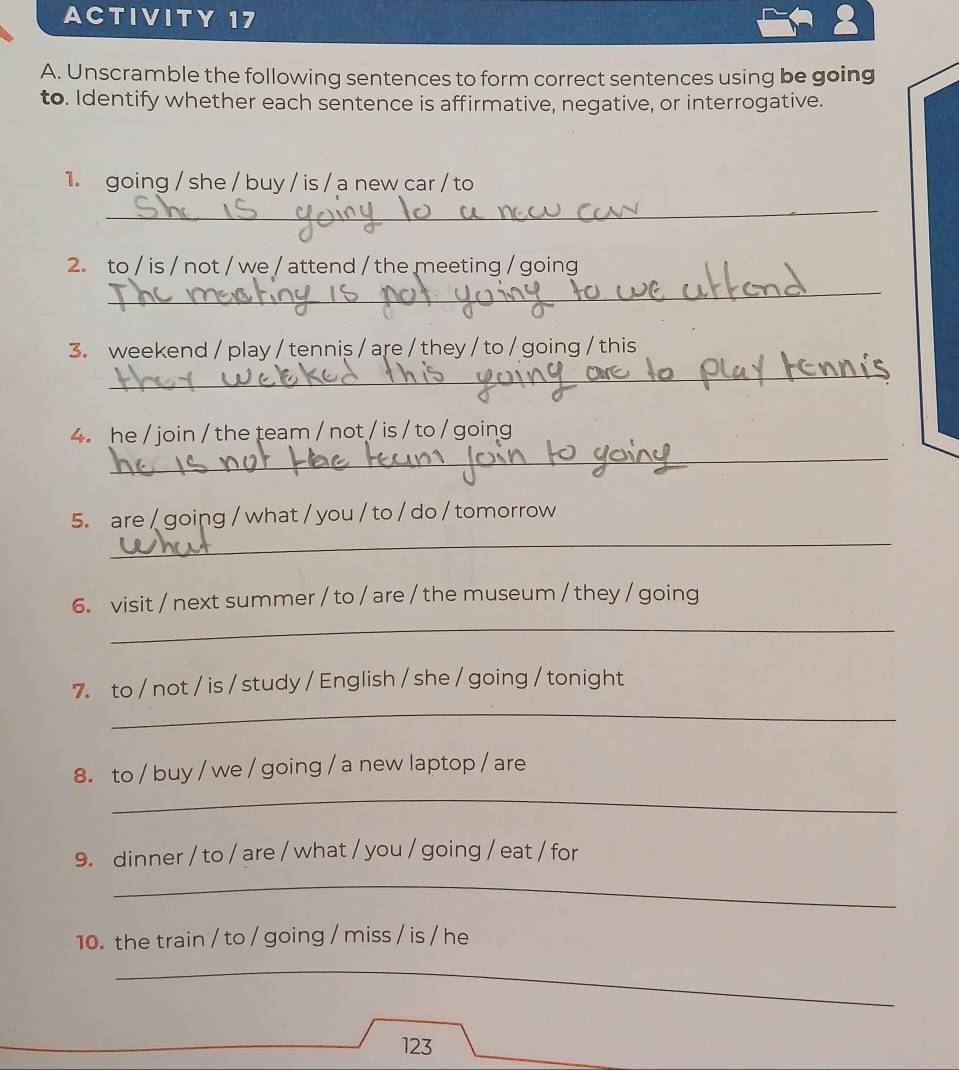 ACTIVITY 17
A. Unscramble the following sentences to form correct sentences using be going
to. Identify whether each sentence is affirmative, negative, or interrogative.
1. going / she / buy / is / a new car / to
She is going to a new car
2. to / is / not / we / attend / the meeting / going
The meating is not going to we attend
3. weekend / play / tennis / are / they / to / going / this
they weekked this going are to play tennis
4. he / join / the team / not / is / to / going
he is not the team join to going
5. are / going / what / you / to / do / tomorrow
what
6. visit / next summer / to / are / the museum / they / going
7. to / not / is / study / English / she / going / tonight
8. to / buy / we / going / a new laptop / are
9. dinner / to / are / what / you / going / eat / for
10. the train / to / going / miss / is / he
123